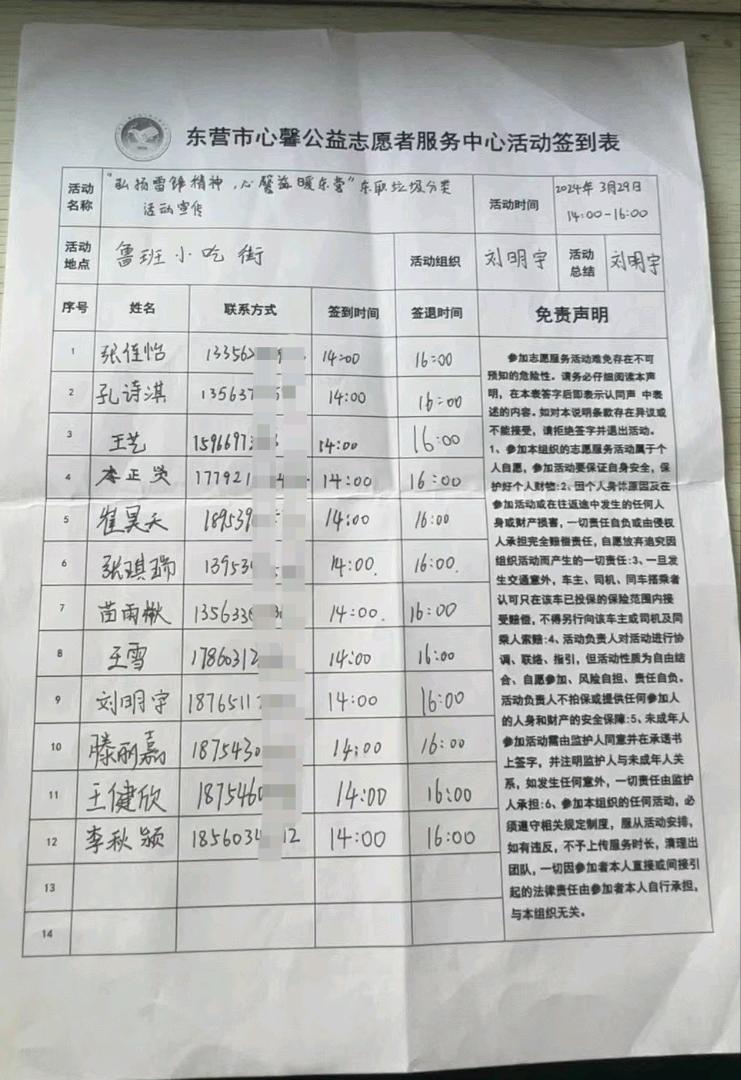 东营市心馨公益志愿者服务中心活动签到表
活动名称 "弘扬雷锋精神，心馨益暖东营"东职垃圾分类
活动宣传
活动时间 2024年3月29日
14:00-16:00
活动地点 鲁班小吃街 活动组织 刘明宇 活动总结 刘明宇
序号 姓名 联系方式 签到时间 签退时间 免责声明
1 张佳怡 133562 14:00 16:00
2 孔诗淇 135637 14:00 16:00
3 王艺 1596697 14:00 16:00
4 李正英 177921 14:00 16:00
5 崔昊天 189539 14:00 16:00
6 张琪瑞 13953 14:00 16:00
7 苗雨楸 1356336 14:00 16:00
8 王雪 17860312 14:00 16:00
9 刘明宇 1876511 14:00 16:00
10 滕丽嘉 1875430 14:00 16:00
11 王健欣 1875460 14:00 16:00
12 李秋颍 1856034 12 14:00 16:00
13
14
参加志愿服务活动难免存在不可
预知的危险性。请务必仔细阅读本声
明，在本表签字后即表示认同声 中表
述的内容。如对本说明条款存在异议或
不能接受，请拒绝签字并退出活动。
1、参加本组织的志愿服务活动属于个
人自愿，参加活动要保证自身安全，保
护好个人财物:2、因个人身体原因及在
参加活动或在往返途中发生的任何人
身或财产损害，一切责任自负或由侵权
人承担完全赔偿责任，自愿放弃追究因
组织活动而产生的一切责任:3、一旦发
生交通意外，车主、司机、同车搭乘者
认可只在该车已投保的保险范围内接
受赔偿，不得另行向该车主或司机及同
乘人索赔:4、活动负责人对活动进行协
调、联络、指引，但活动性质为自由结
合、自愿参加、风险自担、责任自负。
活动负责人不担保或提供任何参加人
的人身和财产的安全保障:5、未成年人
参加活动需由监护人同意并在承诺书
上签字，并注明监护人与未成年人关
系，如发生任何意外，一切责任由监护
人承担:6、参加本组织的任何活动，必
须遵守相关规定制度，服从活动安排，
如有违反，不予上传服务时长，清理出
团队，一切因参加者本人直接或间接引
起的法律责任由参加者本人自行承担，
与本组织无关。